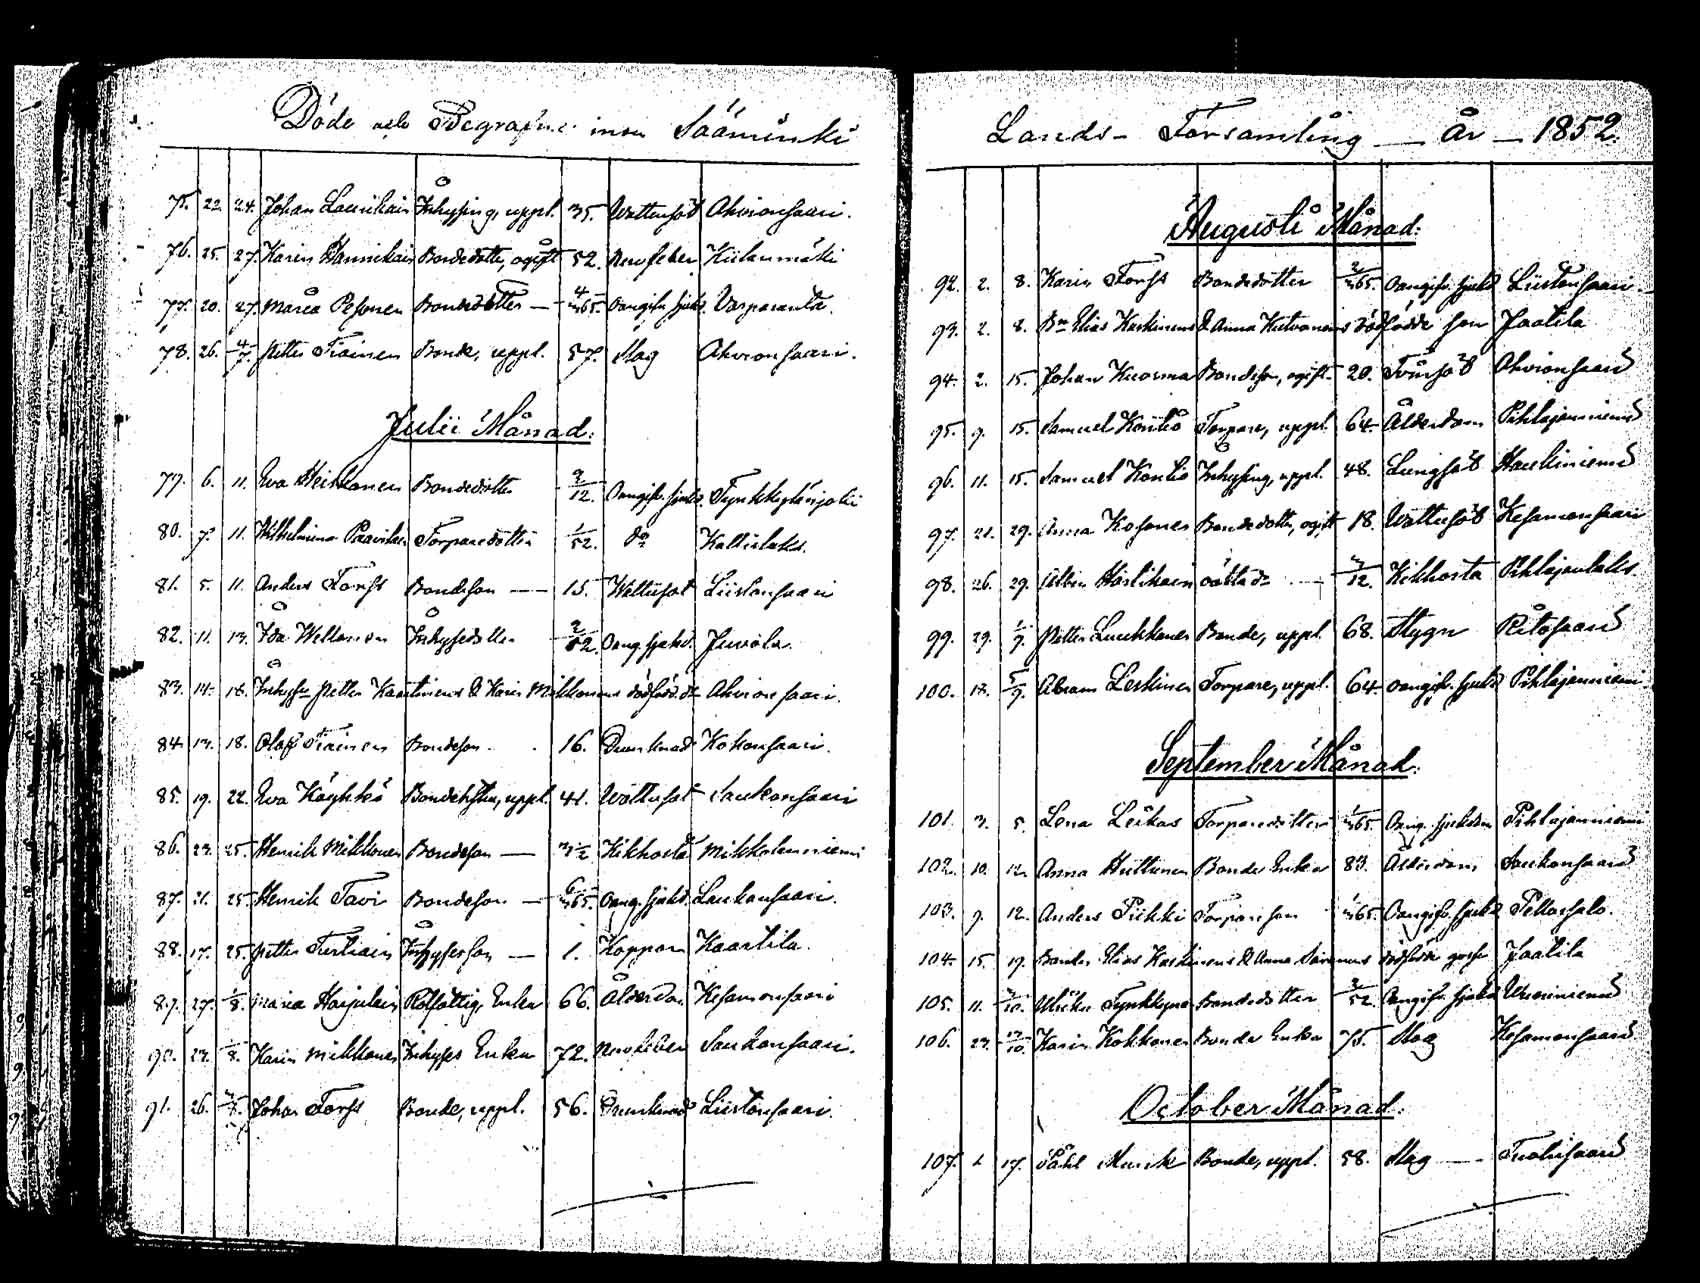 Döde och Begrafne inom Sääminki
75. 22. 24. Johan Laurikain Inhysing, uppl. 35. Wattusot Ahvionsaari.
76. 25. 27. Karin Hannikain Bondedotter, ogift 52. Nervfeber Kiilanmäki
77. 20. 27. Maria Pesonen Bondedotter — 4/365. Oangifv. sjukd. Varparanta.
78. 26. 4/7. Petter Tiainen Bonde, uppl. 57. Slag Ahvionsaari.
Julii Månad:
79. 6. 11. Eva Heikkonen Bondedotter 9/12. Oangifv. sjukd. Tynkkylänjoki
80. 7. 11. Wilhelmina Paavilain Torparedotter 1/52. do Kallislaks.
81. 5. 11. Anders Forss Bondeson — 15. Wattusot Liistonsaari
82. 11. 13. Ida Weltonen Inhysedotter 2/52. Oang. sjukd. Juvola.
83. 14. 18. Inhyses Petter Kaartinens & Karin Mikkonens dödfödd dr Ahvionsaari.
84. 13. 18. Olof Tiainen Bondeson 16. Drunknad Kokonsaari.
85. 19. 22. Eva Käyhkö Bondehustru, uppl. 41. Wattusot Saukonsaari
86. 23. 25. Henrik Mikkonen Bondeson — 3 1/2 Kikhosta Mikkolanniemi
87. 21. 25. Henrik Tavi Bondeson — 6/365. Oang. sjukd. Laukansaari.
88. 17. 25. Petter Turtiain Inhyseson — 1. Koppor Kaartila.
89. 27. 1/8. Maria Harjulain Rotfattig Enka 66. Ålderdom Kesamonsaari
90. 23. 1/8. Karin Mikkonen Inhyses Enka 72. Nervfeber Saukonsaari.
91. 26. /8. Johan Forss Bonde, uppl. 56. Drunknad Liistonsaari.
Lands- Församling — År — 1852.
Augusti Månad:
92. 2. 8. Karin Forss Bondedotter 2/365. Oangifv. sjukd Liistonsaari.
93. 2. 8. Bn Elias Kaskinens & Anna Hutvonens dödfödde son Jaatila
94. 2. 15. Johan Kuosma Bondeson, ogift 20. Tvinsot Ahvionsaari
95. 9. 15. Samuel Kontio Torpare, uppl. 64. Ålderdom Pihlajanniemi
96. 11. 15. Samuel Kontio Inhysing, uppl. 48. Lungsot Haukiniemi
97. 21. 29. Anna Kosonen Bondedotter, ogift 18. Wattusot Kesamonsaari
98. 26. 29. Albin Härlikain oäkta — /12. Kikhosta Pihlajanlaks.
99. 29. 1/9. Petter Luukkonen Bonde, uppl. 68. Stygn Pitosaari
100. 13. 5/9. Abram Leskinen Torpare, uppl. 64. Oangifv. sjukd Pihlajanniemi.
September Månad:
101. 3. 5. Lena Leikas Torparedotter 1/365. Oang. sjukdom Pihlajanniemi
102. 10. 12. Anna Huttunen Bonde Enka 83. Ålderdom Saukonsaari
103. 9. 12. Anders Piikki Torpareson 1/365. Oangifv. sjukd Pellossalo.
104. 15. 19. Bonden Elias Kaskinens & Anna dödfödde gosse Jaatila
105. 11. /10. Ulrika Tynkkynen Bondedotter 3/52. Oangifv. sjukd Uusiniemi
106. 23. /10. Karin Kokkonen Bonde Enka 75. Slag Kesamonsaari
October Månad:
107. 1. 17. Påhl Munk Bonde, uppl. 58. Slag — Tuohisaari